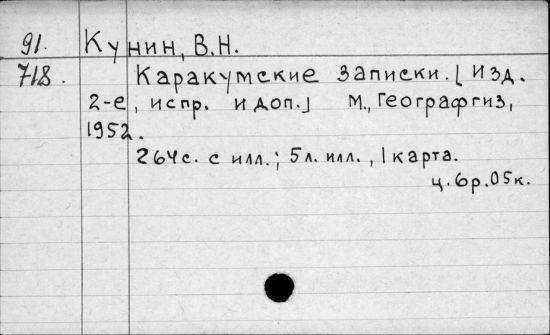 91. Кунин, В.Н.
718. Каракумские записки. [Изд.
2-е, испр. и доп.] М., Географгиз,
1952.
264с. с илл.; 5л. илл., 1 карта.
ц. 6р. 05к.